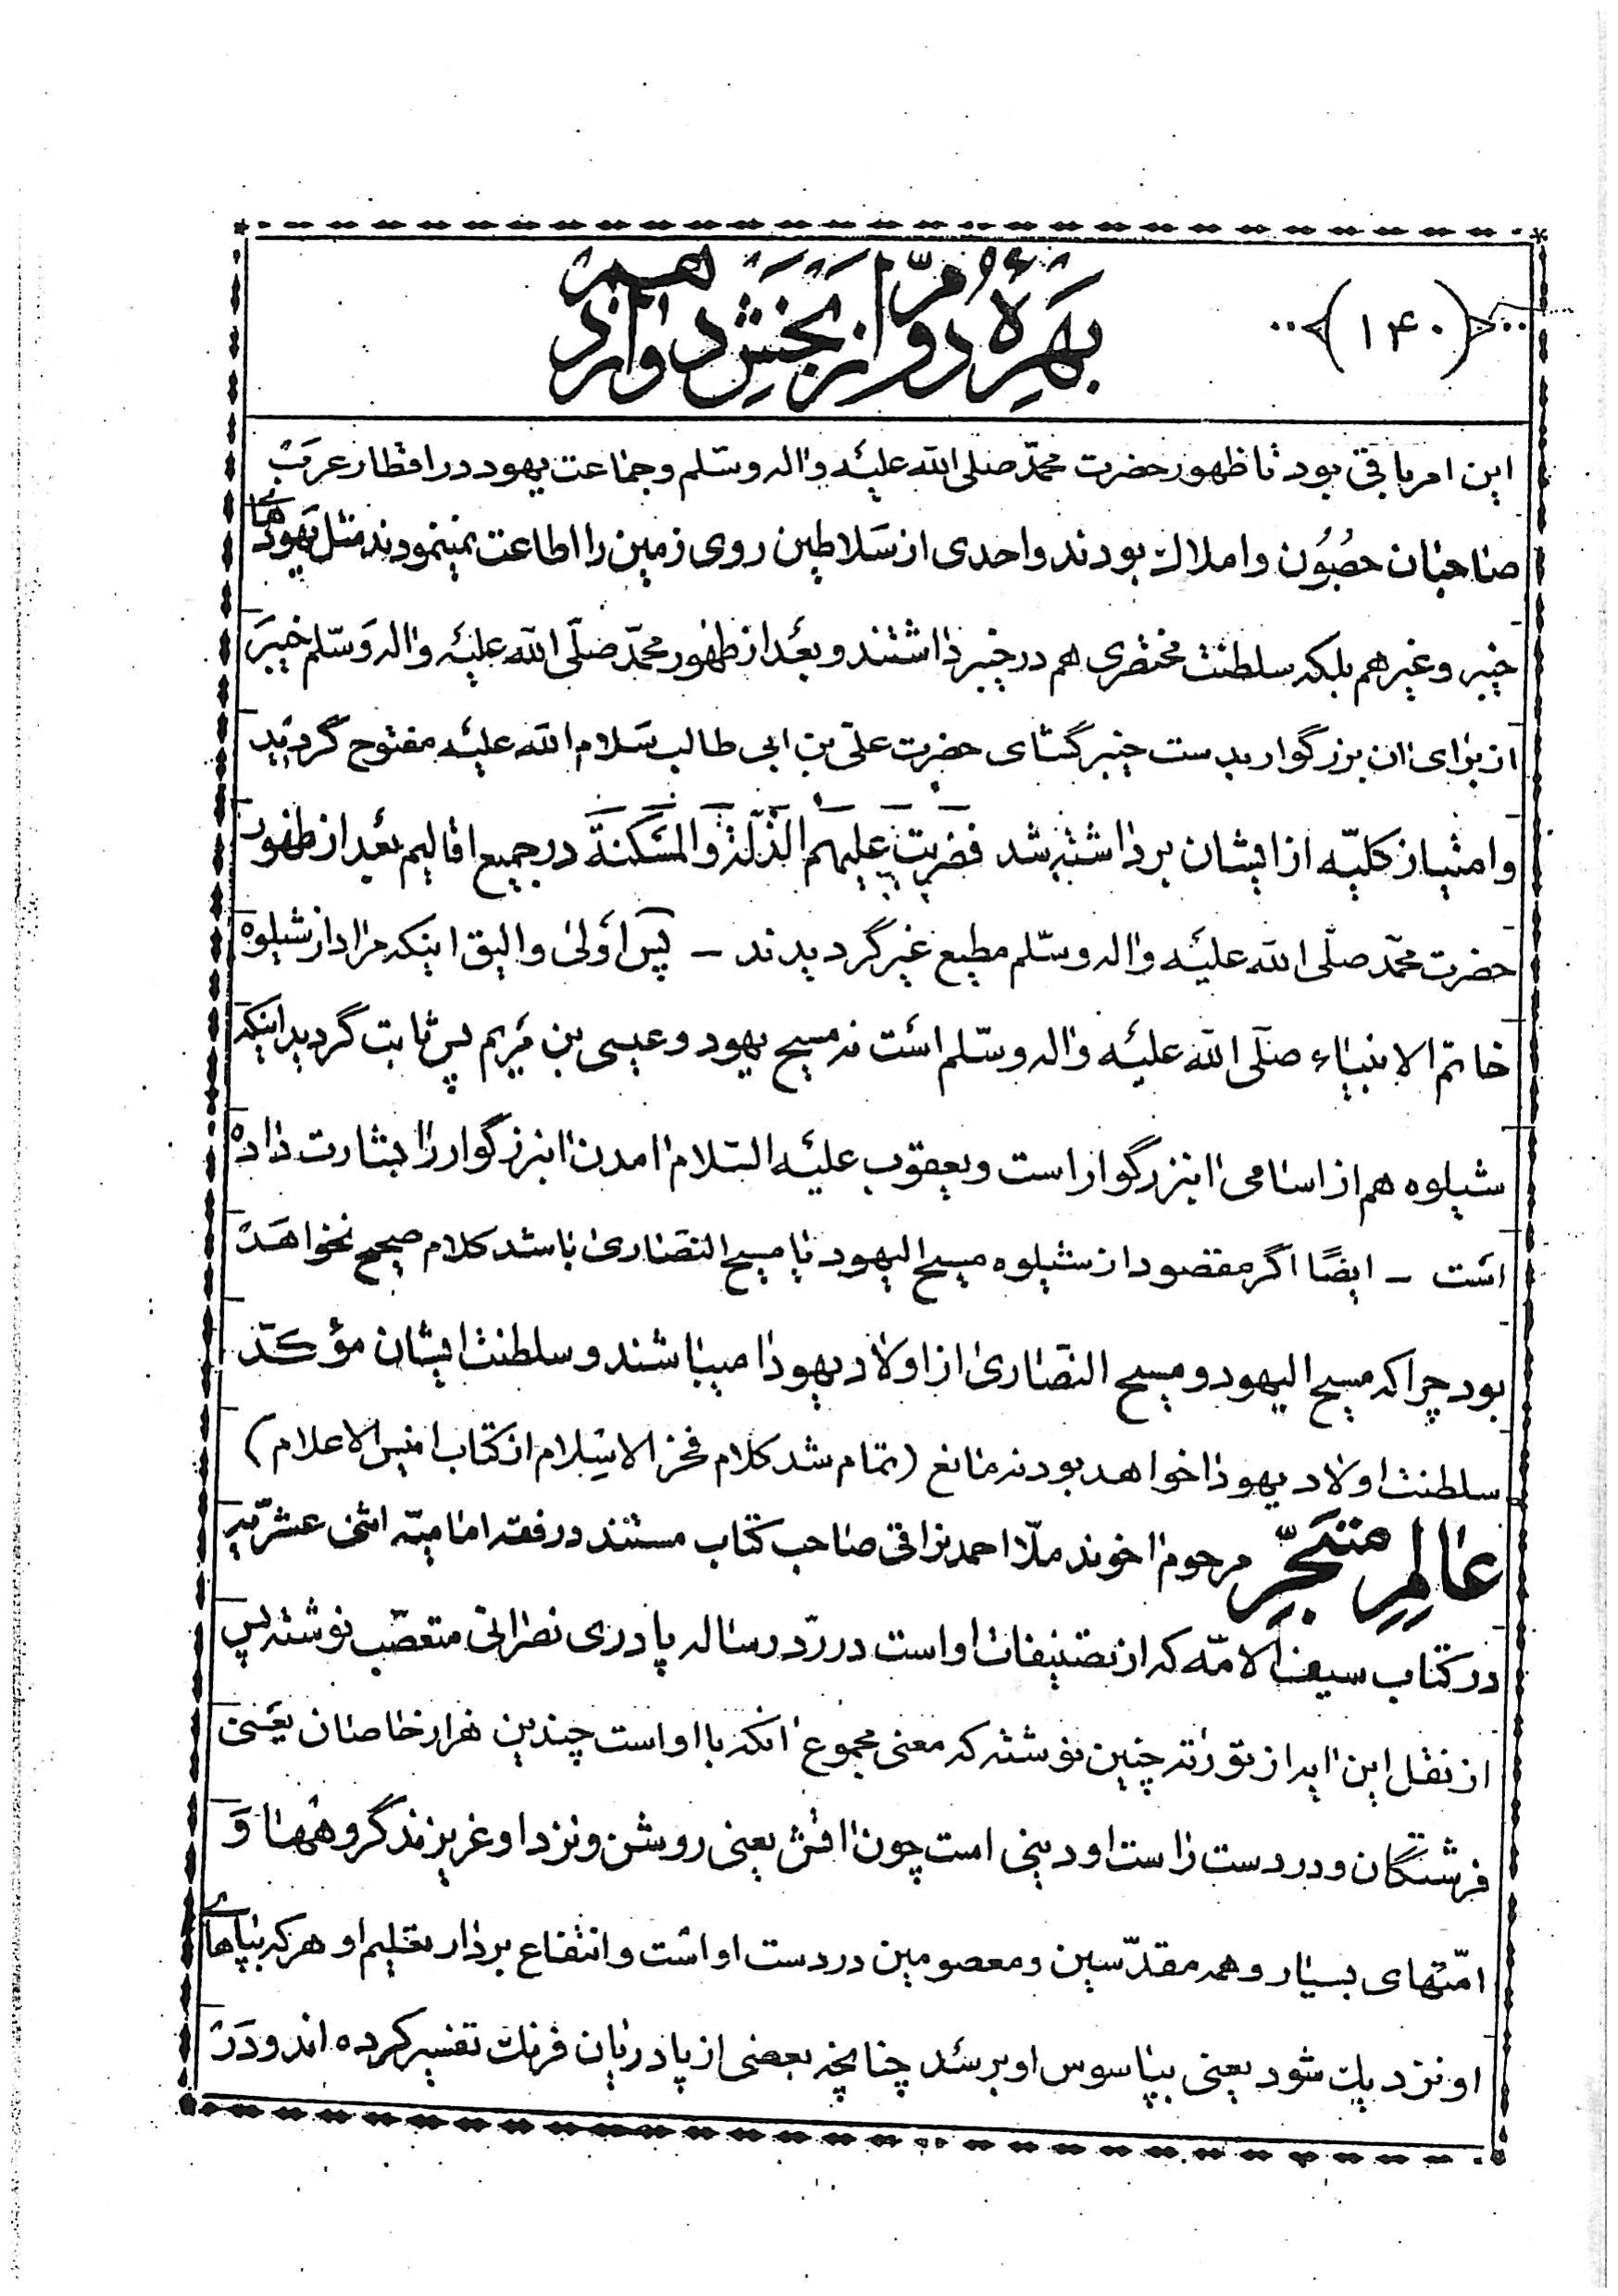 (۱۴۰)
بهرهٔ دوّم از بخش دوازدهم
این امر باقی بود تا ظهور حضرت محمّد صلی الله علیه واله وسلم وجماعت یهود در اقطار عرب
صاحبان حصُون و املاك بودند و احدی از سَلاطین روی زمین را اطاعت نمینمودند مثل یَهودهای
خیبر و غیرهم بلکه سلطنت مختصری هم در خیبر داشتند و بعد از ظهور محمّد صلّی الله علیه واله وَسلّم خیبَر
از برای ان بزرگوار بدست خیبر گشای حضرت علی بن ابی طالب سَلام الله علیه مفتوح گردید
و امتیاز کلیّه از ایشان برداشته شد فضربت علیهم الذّلّة والمَسْکنة در جمیع اقالیم بعد از ظهور
حضرت محمّد صلّی الله علیه واله وسلّم مطیع غیر گردیدند – پس اَولیٰ و الیق اینکه مراد از شیلوه
خاتم الانبیاء صلّی الله علیه واله وسلّم است نه مسیح یهود و عیسی بن مَریم پس ثابت گردید اینکه
شیلوه هم از اسامی انبزرگوار است و یعقوب علیه السّلام امدن انبزرگوار را بشارت داده
است – ایضًا اگر مقصود از شیلوه مسیح الیهود یا مسیح النصاریٰ باشد کلام صحیح نخواهَد
بود چرا که مسیح الیهود و مسیح النصاریٰ از اولاد یهودا میباشند و سلطنت ایشان مؤکّد
سلطنت اولاد یهودا خواهد بود نه مانع (تمام شد کلام فخر الاسلام از کتاب انیس الاعلام)
عالِمِ متبَحِّر مرحوم اخوند ملّا احمد نراقی صاحب کتاب مستند در فقه امامیّه اثنی عشریّه
در کتاب سیف الامّه که از تصنیفات او است در ردّ رساله پادری نصرانی متعصّب نوشته پس
از نقل این ایه از تورٰته چنین نوشته که معنی مجموع انکه با او است چندین هزار خاصان یعنی
فرشتگان و در دست راست او دینی است چون اتش یعنی روشن و نزد او عزیزند گروهها وَ
امّتهای بسیار و همه مقدّسین و معصومین در دست او است و انتفاع بردار تعلیم او هر که بپاهای
او نزدیك شود یعنی بپابوس او برسد چنانچه بعضی از پادریان فرنك تفسیر کرده اند و دَر